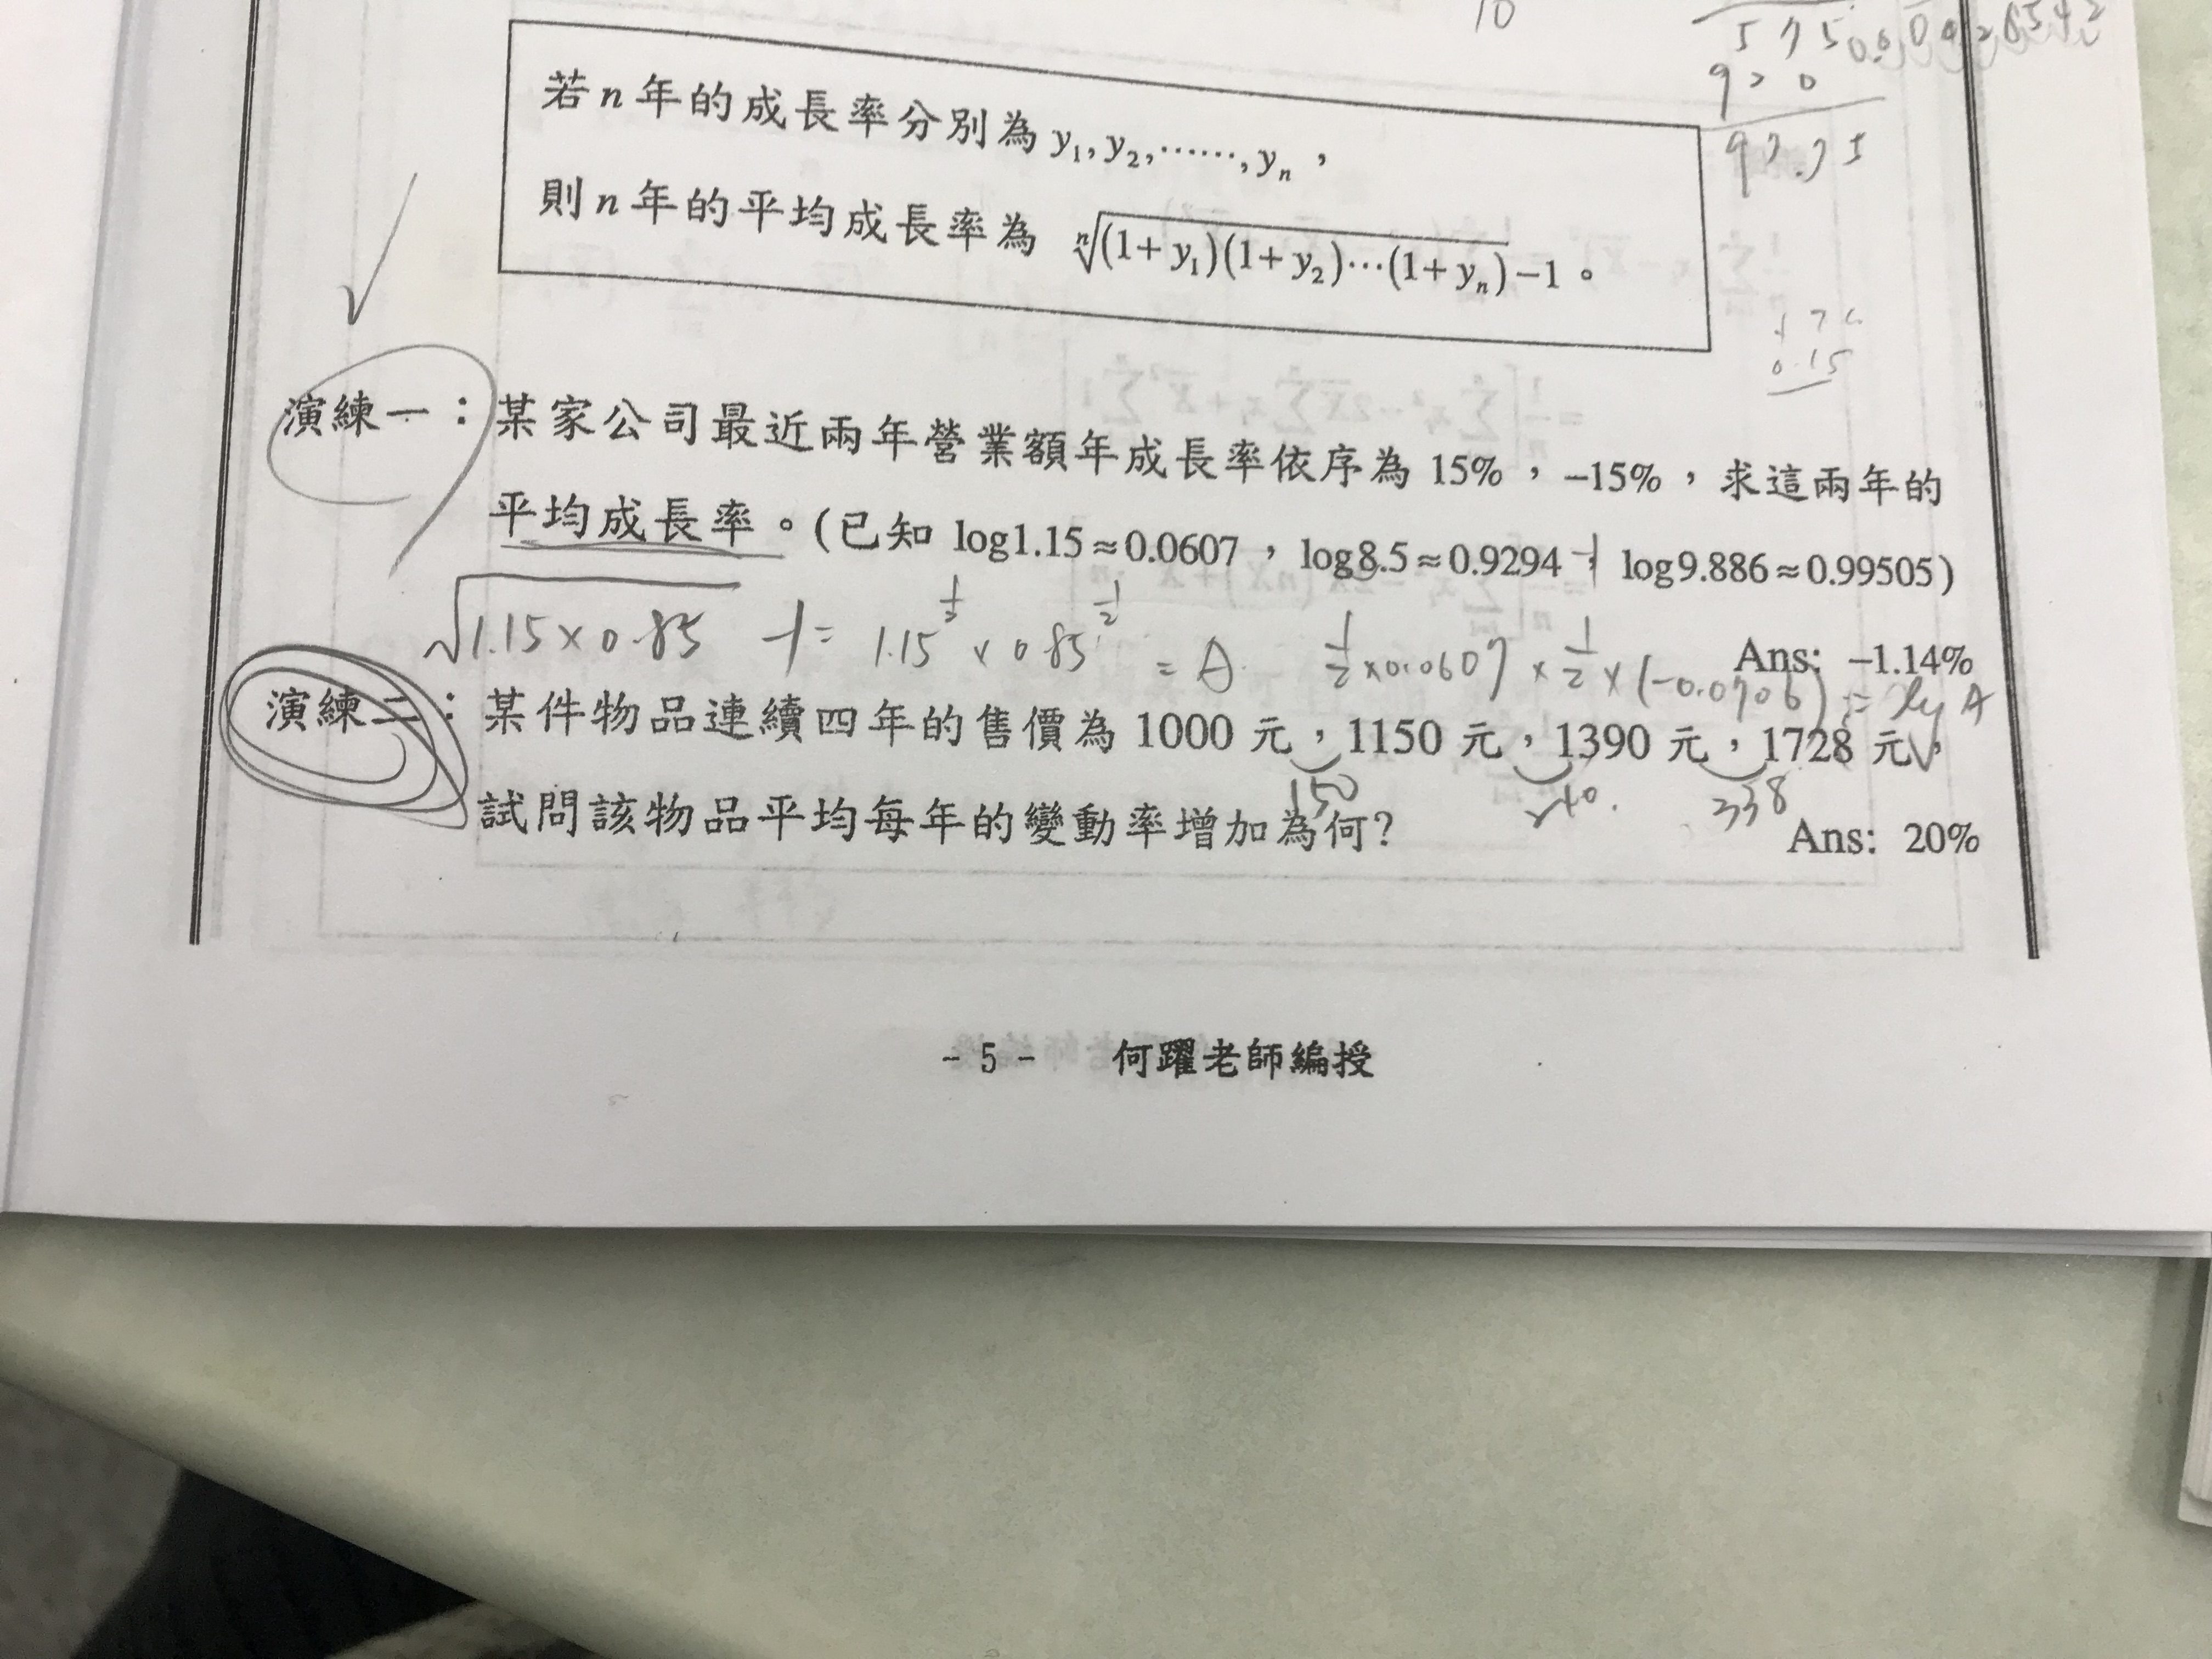 10
5750.00026542
920
97.75
若 n 年的成長率分別為 y₁, y₂, ……, yₙ ，
則 n 年的平均成長率為 ⁿ√(1+y₁)(1+y₂)⋯(1+yₙ) −1 。
0.15
演練一：某家公司最近兩年營業額年成長率依序為 15%，−15%，求這兩年的
平均成長率。(已知 log1.15≈0.0607，log8.5≈0.9294，log9.886≈0.99505)
√1.15×0.85 −1 = 1.15^½ × 0.85^½ = A ½×0.0607 × ½×(−0.0706) = log A
Ans: −1.14%
演練二：某件物品連續四年的售價為 1000 元，1150 元，1390 元，1728 元，
150 240 338
試問該物品平均每年的變動率增加為何？
Ans: 20%
- 5 - 何躍老師編授